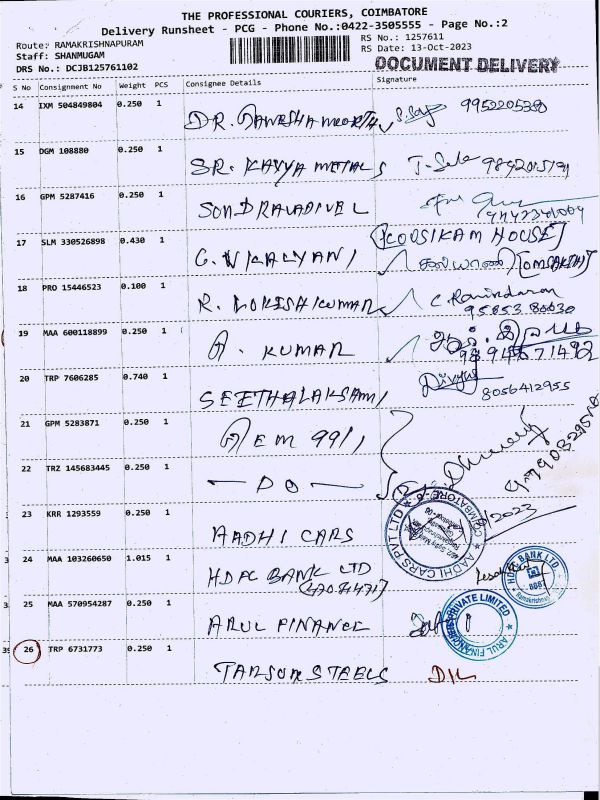 THE PROFESSIONAL COURIERS, COIMBATORE
Delivery Runsheet - PCG - Phone No.:0422-3505555 - Page No.:2
Route: RAMAKRISHNAPURAM
RS No.: 1257611
Staff: SHANMUGAM
RS Date: 13-Oct-2023
DRS No.: DCJB125761102
DOCUMENT DELIVERY
S No Consignment No Weight PCS Consignee Details Signature
14 IXM 504849804 0.250 1 DR. 9952205380
15 DGM 108880 0.250 1 SR. KAVYA METALS
16 GPM 5287416 0.250 1 SONDRAVADIVEL
[COUSIKAM HOUSE]
17 SLM 330526898 0.430 1 G. V KALYANI கல்யாணி [OMSAKTHI]
18 PRO 15446523 0.100 1 R. LOKESHKUMAR C. Ravindaran
95853 80030
19 MAA 600118899 0.250 1 A. KUMAR
9894671482
20 TRP 7606285 0.740 1 SEETHALAKSAMI Divya 8056412955
21 GPM 5283871 0.250 1 A EM 9911
22 TRZ 145683445 0.250 1 — DO —
23 KRR 1293559 0.250 1 AADHI CARS
AADHI CARS PVT LTD COIMBATORE
24 MAA 103260650 1.015 1 HDFC BANK LTD
HDFC BANK LTD
25 MAA 570954287 0.250 1 ARUL FINANCE
ARUL FINANCE PRIVATE LIMITED
26 TRP 6731773 0.250 1 TARSON STEELS